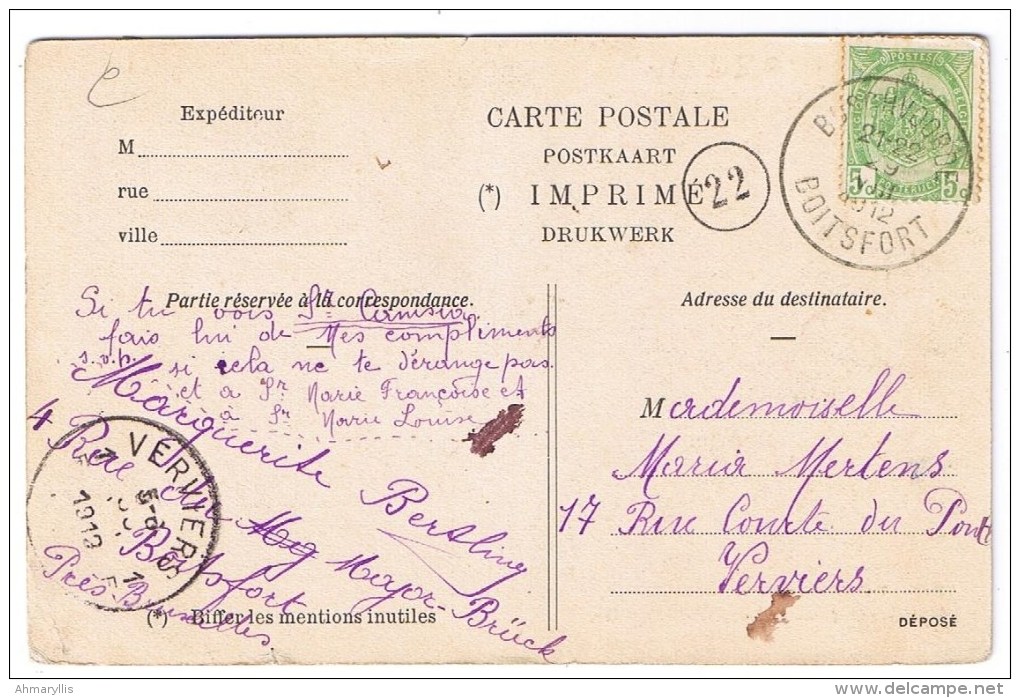 Expéditeur
M
rue
ville
CARTE POSTALE
POSTKAART
(*) IMPRIMÉ
DRUKWERK
22
POSTES
5c 5c
21-22
29
VIII
1912
BOITSFORT
Partie réservée à la correspondance.
Si tu vois Sr Canisia
fais lui de Mes compliments
s.v.p. si cela ne te dérange pas
et à Sr Marie Françoise et
à Sr Marie Louise
Marguerite Bertling
4 Rue du Mayor-Brück
Boitsfort
Près Bruxelles.
VERVIERS
1912
(*) Biffer les mentions inutiles
Adresse du destinataire.
Mademoiselle
Maria Mertens
17 Rue Courte du Pont
Verviers
DÉPOSÉ
Ahmaryllis
www.delcampe.net